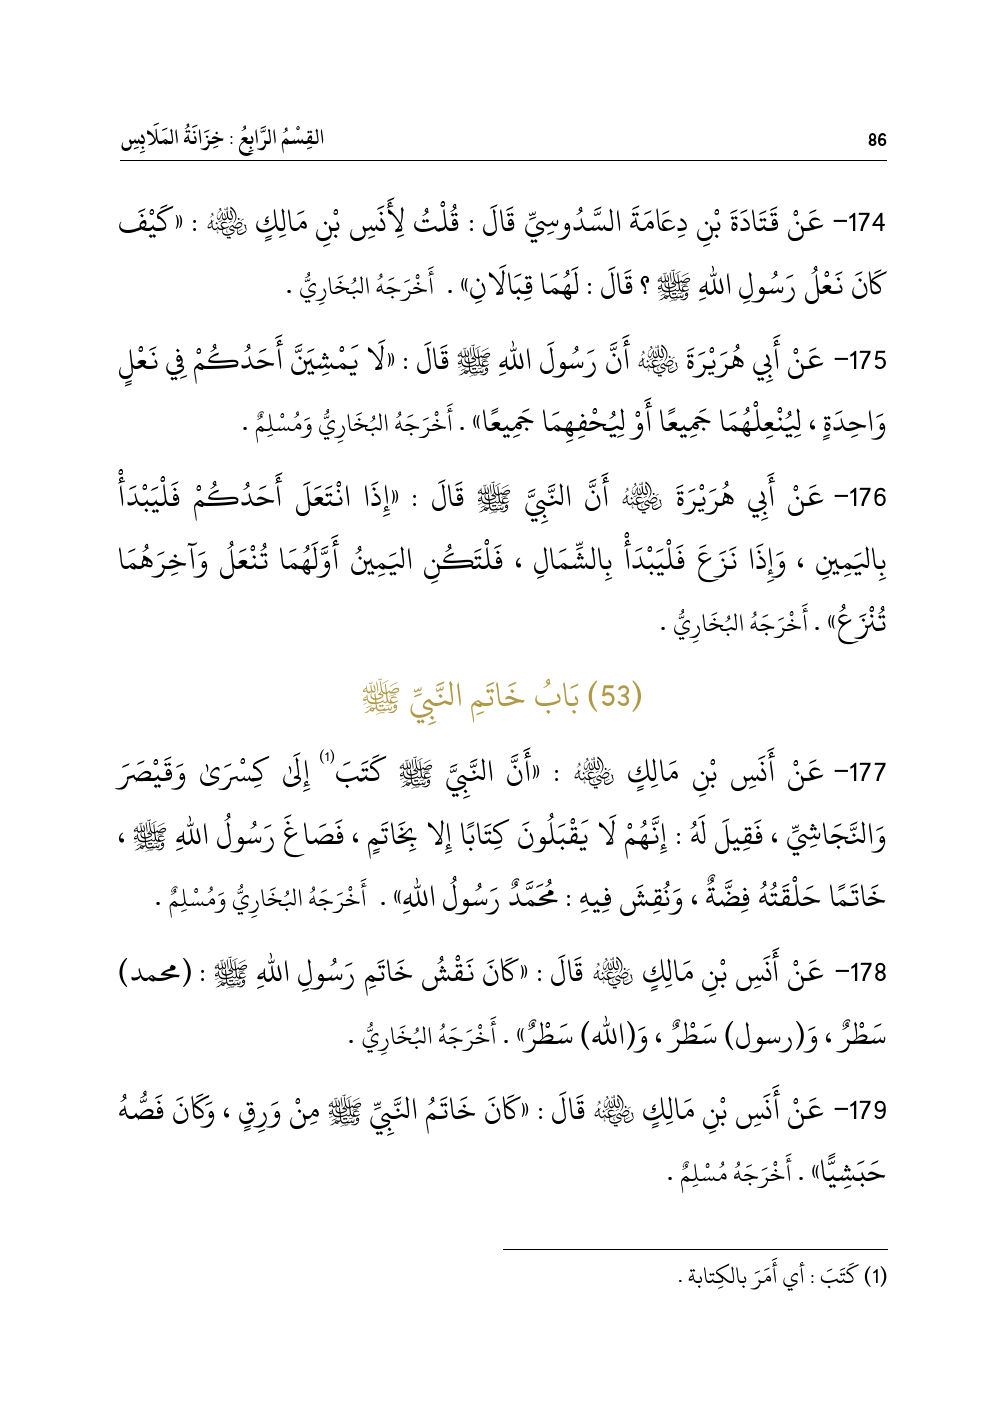 86
القِسْمُ الرَّابِعُ : خِزَانَةُ المَلَابِسِ
174– عَنْ قَتَادَةَ بْنِ دِعَامَةَ السَّدُوسِيِّ قَالَ : قُلْتُ لِأَنَسِ بْنِ مَالِكٍ رضي الله عنه : «كَيْفَ
كَانَ نَعْلُ رَسُولِ اللهِ ﷺ ؟ قَالَ : لَهُمَا قِبَالَانِ» . أَخْرَجَهُ البُخَارِيُّ .
175– عَنْ أَبِي هُرَيْرَةَ رضي الله عنه أَنَّ رَسُولَ اللهِ ﷺ قَالَ : «لَا يَمْشِيَنَّ أَحَدُكُمْ فِي نَعْلٍ
وَاحِدَةٍ ، لِيُنْعِلْهُمَا جَمِيعًا أَوْ لِيُحْفِهِمَا جَمِيعًا» . أَخْرَجَهُ البُخَارِيُّ وَمُسْلِمٌ .
176– عَنْ أَبِي هُرَيْرَةَ رضي الله عنه أَنَّ النَّبِيَّ ﷺ قَالَ : «إِذَا انْتَعَلَ أَحَدُكُمْ فَلْيَبْدَأْ
بِاليَمِينِ ، وَإِذَا نَزَعَ فَلْيَبْدَأْ بِالشِّمَالِ ، فَلْتَكُنِ اليَمِينُ أَوَّلَهُمَا تُنْعَلُ وَآخِرَهُمَا
تُنْزَعُ» . أَخْرَجَهُ البُخَارِيُّ .
(53) بَابُ خَاتَمِ النَّبِيِّ ﷺ
177– عَنْ أَنَسِ بْنِ مَالِكٍ رضي الله عنه : «أَنَّ النَّبِيَّ ﷺ كَتَبَ(1) إِلَى كِسْرَىٰ وَقَيْصَرَ
وَالنَّجَاشِيِّ ، فَقِيلَ لَهُ : إِنَّهُمْ لَا يَقْبَلُونَ كِتَابًا إِلا بِخَاتَمٍ ، فَصَاغَ رَسُولُ اللهِ ﷺ ،
خَاتَمًا حَلْقَتُهُ فِضَّةٌ ، وَنُقِشَ فِيهِ : مُحَمَّدٌ رَسُولُ اللهِ» . أَخْرَجَهُ البُخَارِيُّ وَمُسْلِمٌ .
178– عَنْ أَنَسِ بْنِ مَالِكٍ رضي الله عنه قَالَ : «كَانَ نَقْشُ خَاتَمِ رَسُولِ اللهِ ﷺ : (محمد)
سَطْرٌ ، وَ(رسول) سَطْرٌ ، وَ(الله) سَطْرٌ» . أَخْرَجَهُ البُخَارِيُّ .
179– عَنْ أَنَسِ بْنِ مَالِكٍ رضي الله عنه قَالَ : «كَانَ خَاتَمُ النَّبِيِّ ﷺ مِنْ وَرِقٍ ، وَكَانَ فَصُّهُ
حَبَشِيًّا» . أَخْرَجَهُ مُسْلِمٌ .
(1) كَتَبَ : أي أَمَرَ بالكِتابة .